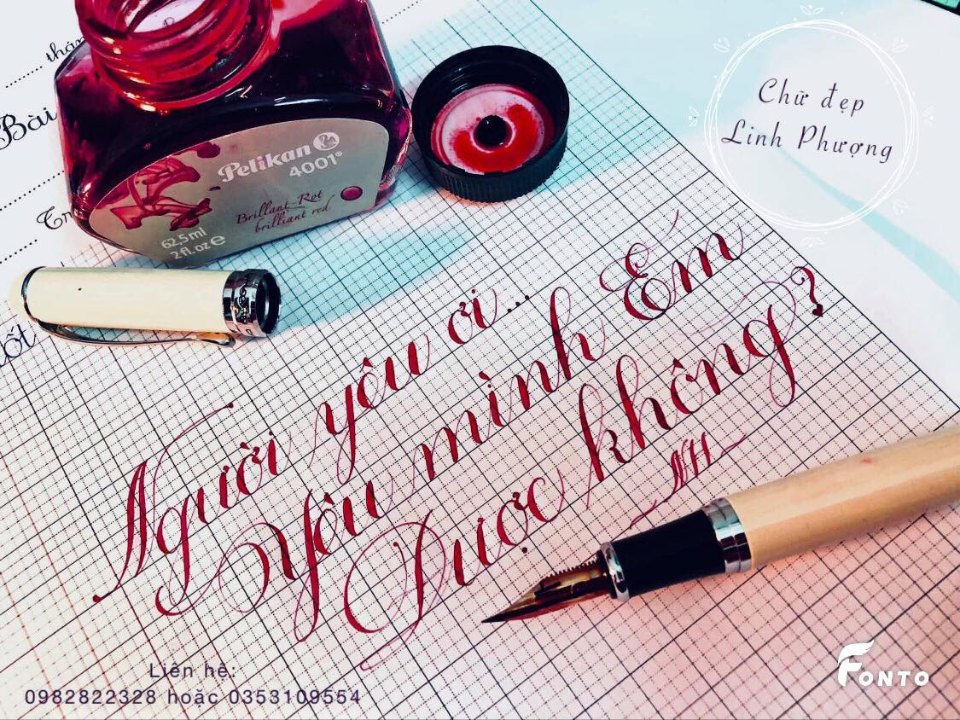 Bài
Pelikan
4001®
Brillant-Rot
brilliant red
62,5ml
2fl.oz e
Chữ đẹp
Linh Phượng
Người yêu ơi...
Yêu mình Em
Được không?
NH
Liên hệ:
0982822328 hoặc 0353109554
FONTO